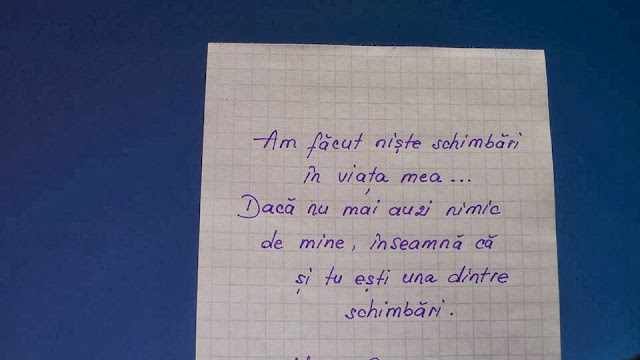 Am făcut niște schimbări
în viața mea...
Dacă nu mai auzi nimic
de mine, înseamnă că
și tu ești una dintre
schimbări.